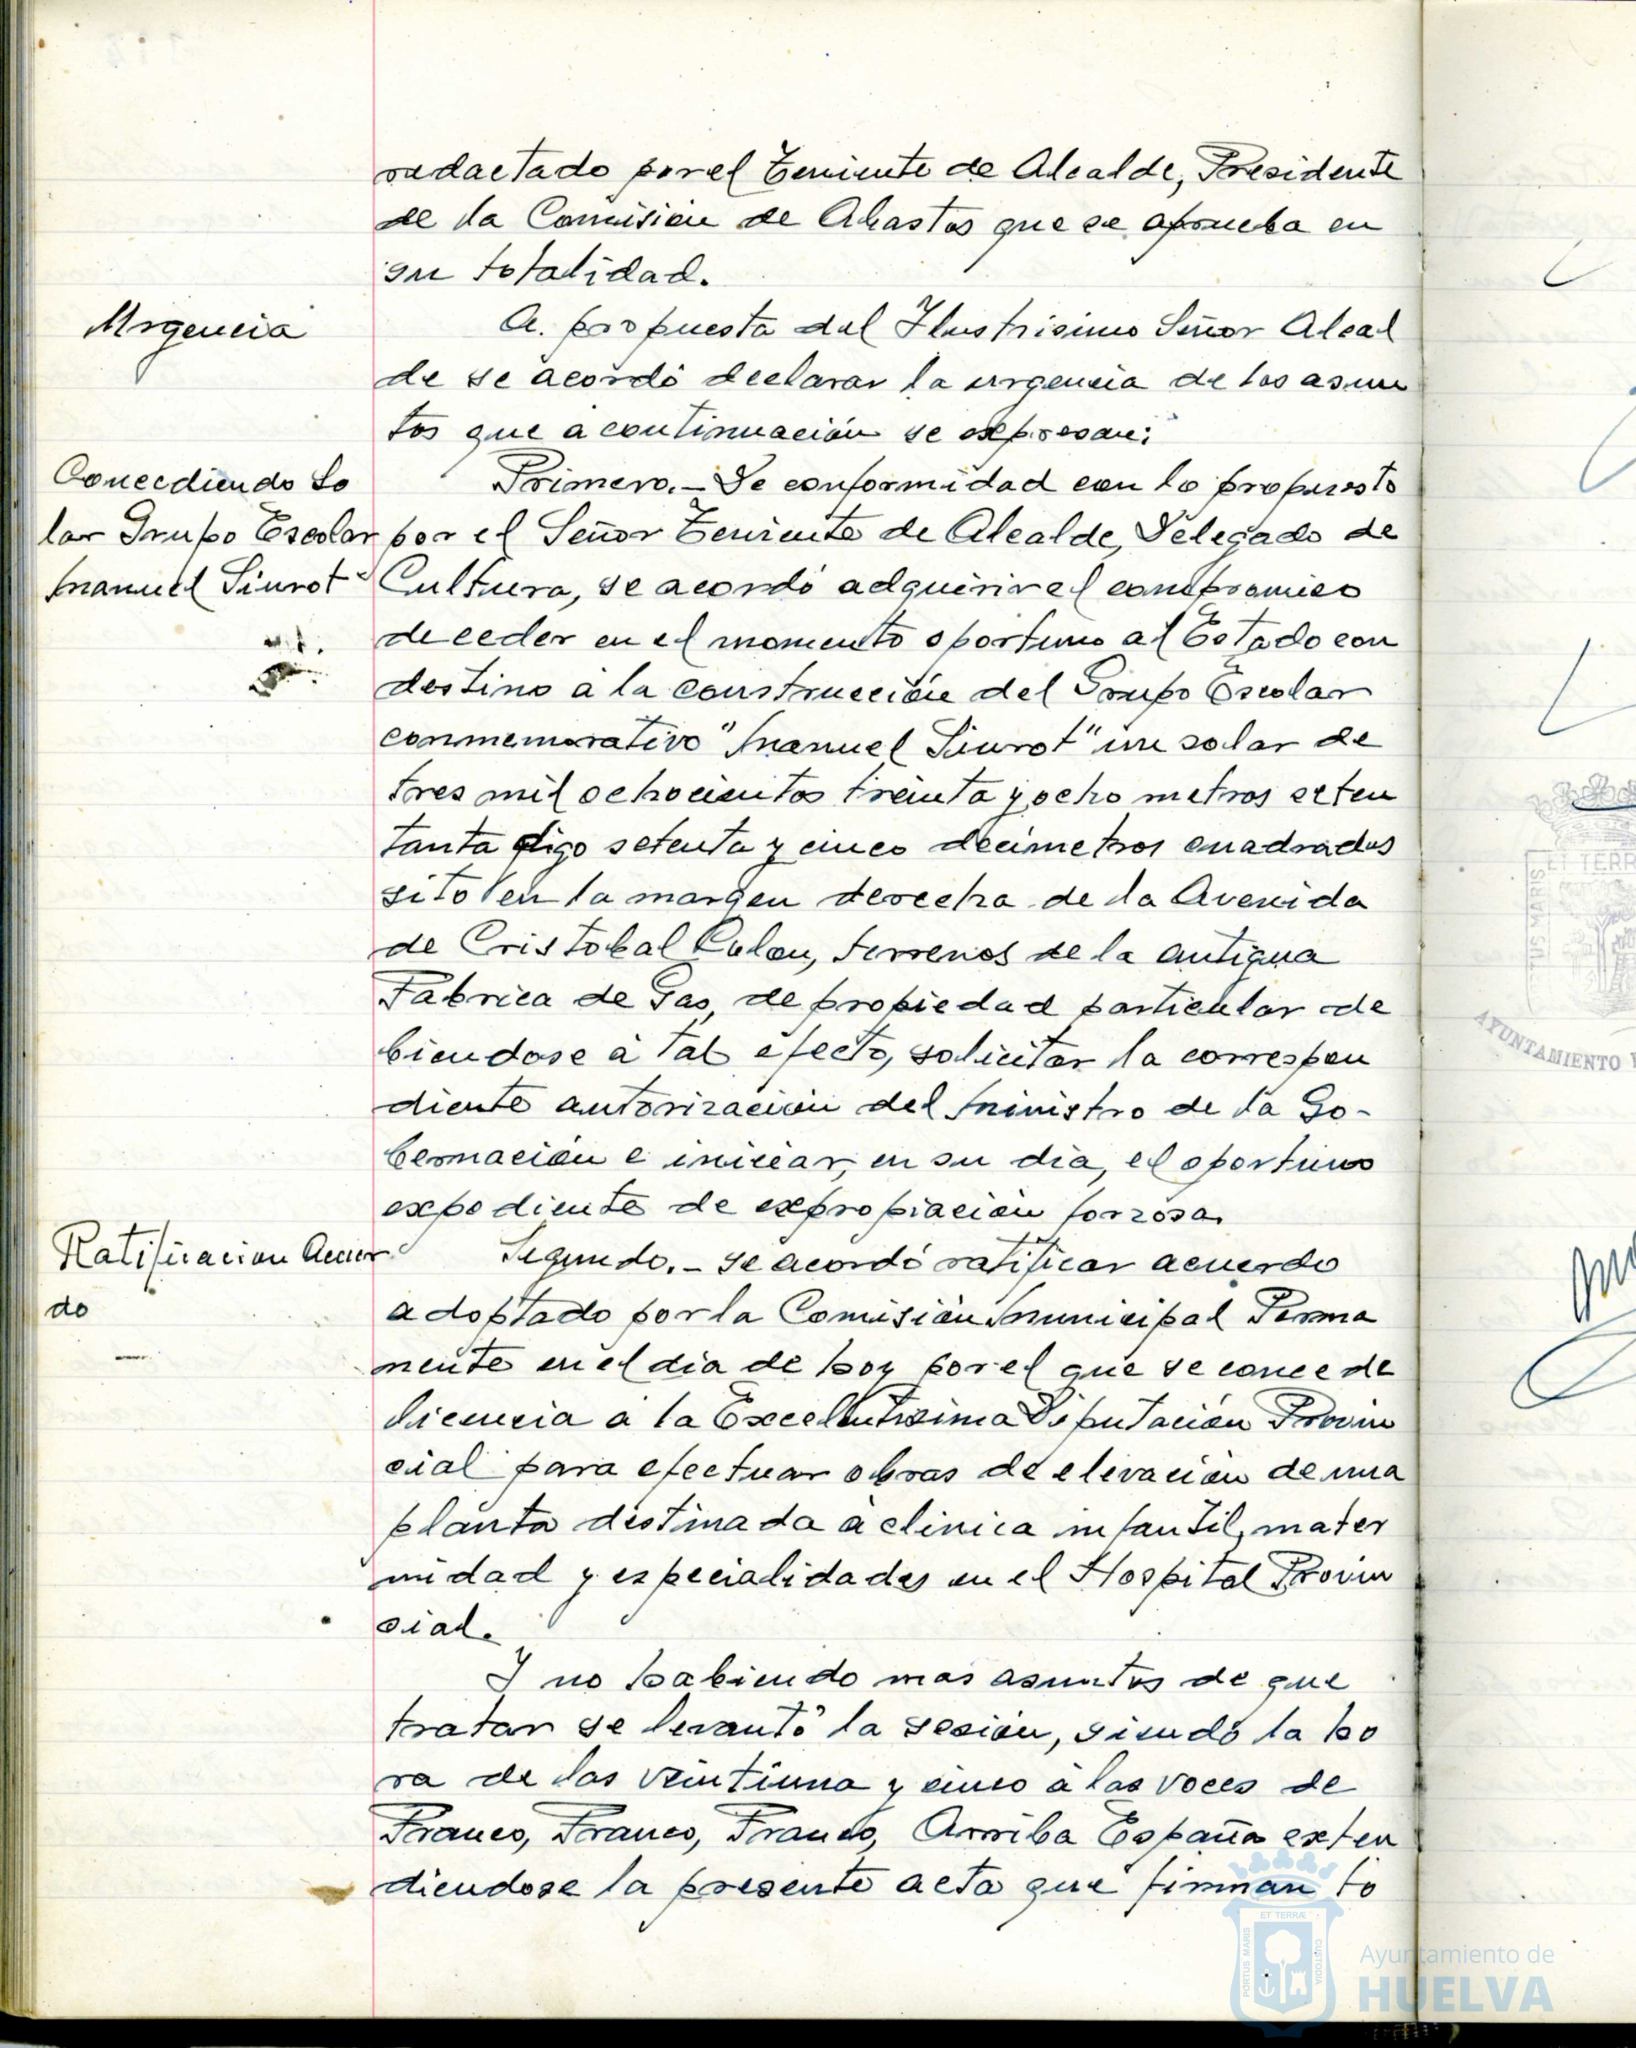 redactado por el Teniente de Alcalde, Presidente
de la Comisión de Abastos que se aprueba en
su totalidad.
Urgencia
A. propuesta del Ilustrisimo Señor Alcal
de se acordó declarar la urgencia de los asun
tos que a continuación se expresan:
Concediendo So
lar Grupo Escolar
Manuel Siurot"
Primero.- De conformidad con lo propuesto
por el Señor Teniente de Alcalde, Delegado de
Cultura, se acordó adquirir el compromiso
de ceder en el momento oportuno al Estado con
destino a la construcción del Grupo Escolar
conmemorativo "Manuel Siurot" un solar de
tres mil ochocientos treinta y ocho metros seten
tanta digo setenta y cinco decimetros cuadrados
sito en la margen derecha de la Avenida
de Cristobal Colon, terrenos de la antigua
Fabrica de Gas, de propiedad particular de
biendose a tal efecto, solicitar la correspon
diente autorización del Ministro de la Go-
bernación e iniciar, en su dia, el oportuno
expediente de expropiación forzosa.
Ratificacion Acuer
do
Segundo.- se acordó ratificar acuerdo
adoptado por la Comisión Municipal Perma
nente en el dia de hoy por el que se concede
licencia a la Excelentisima Diputación Provin
cial para efectuar obras de elevación de una
planta destinada a clinica infantil, mater
nidad y especialidades en el Hospital Provin
cial.
Y no habiendo mas asuntos de que
tratar se levantó la sesión, siendo la ho
ra de las veintiuna y cinco a las voces de
Franco, Franco, Franco, Arriba España exten
diendose la presente acta que firman to
ET TERR
TUS MARIS
AYUNTAMIENTO
PORTUS MARIS
ET TERRÆ
CUSTODIA
Ayuntamiento de
HUELVA